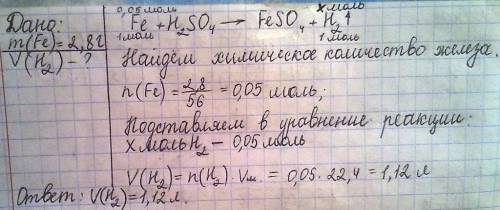 Дано:
m(Fe)=2,8г
V(H₂) - ?
0,05 моль x моль
Fe + H₂SO₄ → FeSO₄ + H₂↑
1 моль 1 моль
Найдём химическое количество железа.
n(Fe) = 2,8/56 = 0,05 моль;
Подставляем в уравнение реакции:
x моль H₂ – 0,05 моль
V(H₂) = n(H₂) · Vм = 0,05 · 22,4 = 1,12 л
Ответ: V(H₂)=1,12 л.